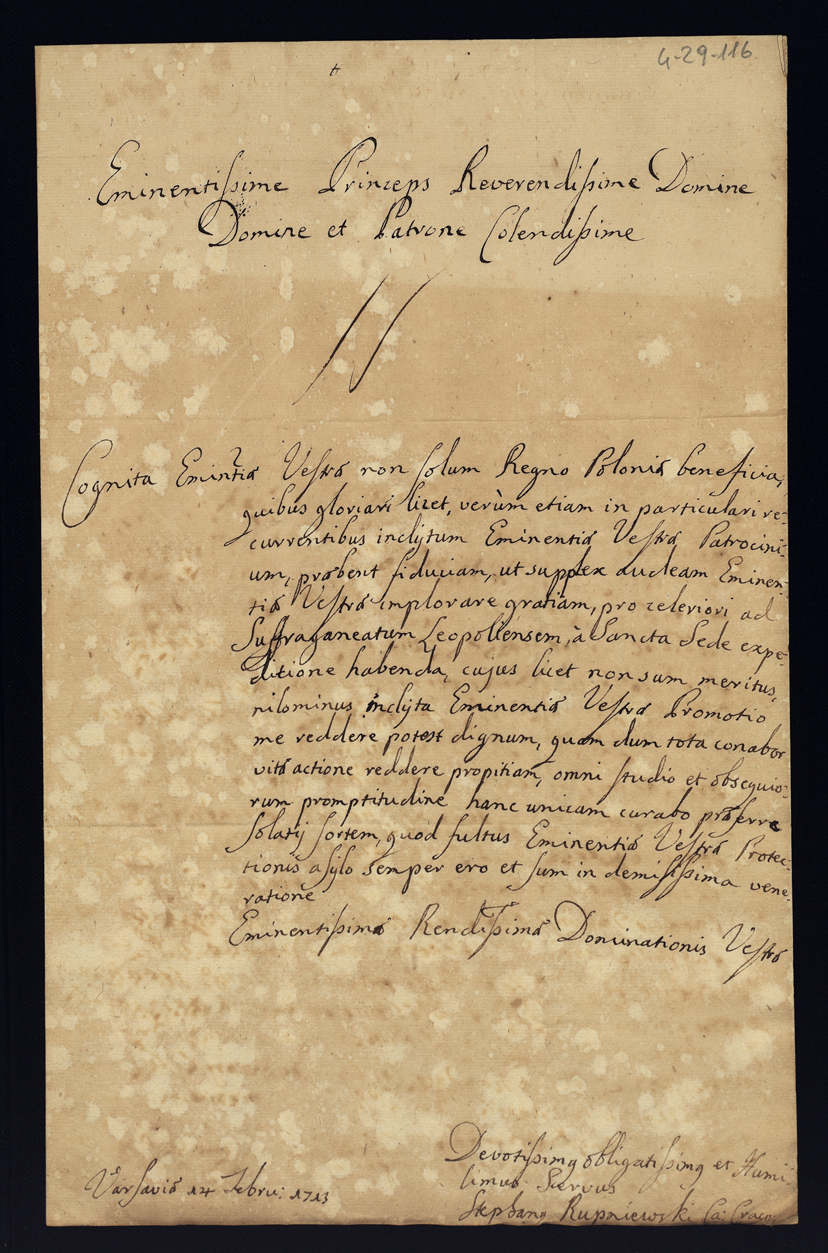 4-29-116
Eminentissime Princeps Reverendissime Domine
Domine et Patrone Colendissime
Cognita Emin̄tiæ Vestræ non solum Regno Poloniæ beneficia,
quibus gloriari licet, verùm etiam in particulari re-
currentibus inclytum Eminentiæ Vestræ Patrocini-
um, præbent fiduciam, ut supplex audeam Eminen-
tiæ Vestræ implorare gratiam, pro celeriori ad
Suffraganeatum Leopoliensem, à Sancta Sede expe-
ditione habenda, cujus licet non sum meritus,
nilominus inclyta Eminentiæ Vestræ Promotio
me reddere potest dignum, quam dum tota conabor
vitæ actione reddere propitiam, omni studio et obsequio-
rum promptitudine hanc unicam curabo præferre
Solatij sortem, quod fultus Eminentiæ Vestræ Protec-
tionis asylo semper ero et sum in demississima vene-
ratione
Eminentissimæ Rendissimæ Dominationis Vestræ
Devotissimq obligatissimq et Humi-
limus Servus
Stephanq Rupniewski Ca: Crac:
Varsaviæ 14 Febru: 1713